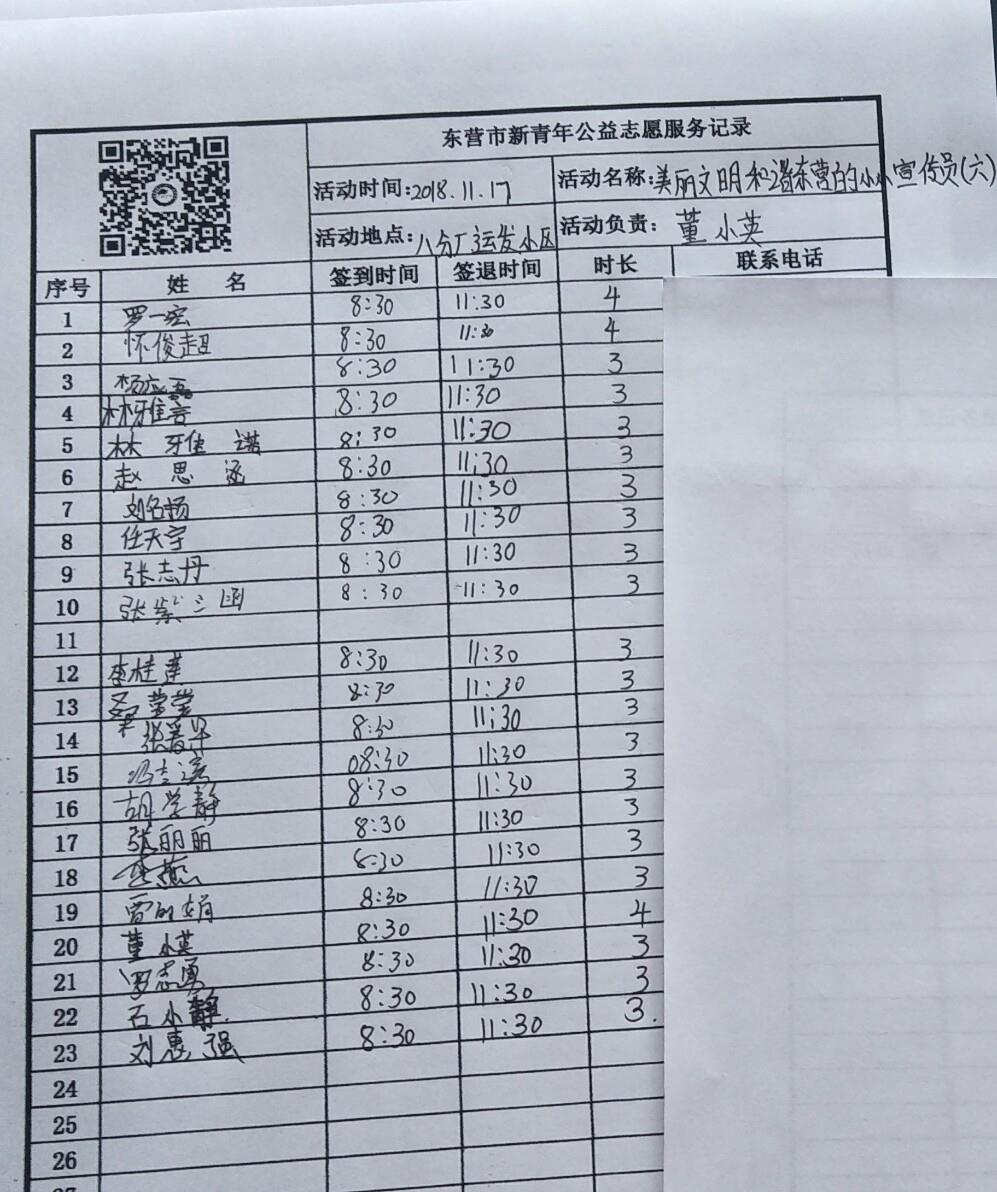 东营市新青年公益志愿服务记录
活动时间:2018.11.17 活动名称:美丽文明和谐东营的小小宣传员(六)
活动地点:八分厂运发小区 活动负责: 董小英
序号 姓 名 签到时间 签退时间 时长 联系电话
1 罗一宏 8:30 11:30 4
2 怀俊超 8:30 11:30 4
3 8:30 11:30 3
4 林雅 8:30 11:30 3
5 林雅诺 8:30 11:30 3
6 赵思涵 8:30 11:30 3
7 刘名扬 8:30 11:30 3
8 任天宇 8:30 11:30 3
9 张志丹 8:30 11:30 3
10 张紫涵 8:30 11:30 3
11
12 李桂莲 8:30 11:30 3
13 桑莹莹 8:30 11:30 3
14 张爱 8:30 11:30 3
15 08:30 11:30 3
16 胡学静 8:30 11:30 3
17 张丽丽 8:30 11:30 3
18 8:30 11:30 3
19 8:30 11:30 3
20 董小英 8:30 11:30 4
21 罗志勇 8:30 11:30 3
22 石小静 8:30 11:30 3
23 刘惠强 8:30 11:30 3.
24
25
26